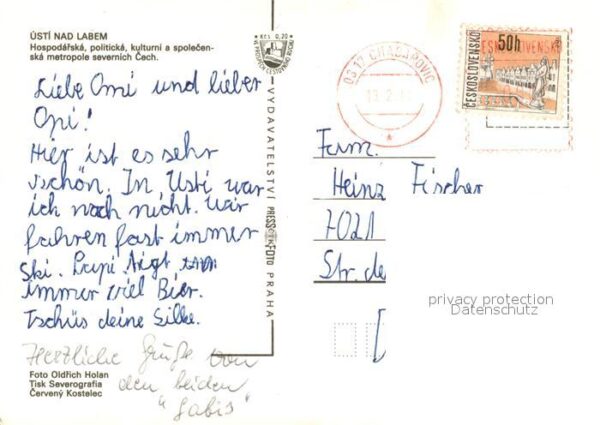 ÚSTÍ NAD LABEM
Hospodářská, politická, kulturní a společen-
ská metropole severních Čech.
Kčs 0,20
Liebe Omi und lieber
Opi!
Hier ist es sehr
schön. In Usti war
ich noch nicht. Wir
fahren fast immer
Ski. Papi
immer viel Bier.
Tschüs deine Silke.
Herzliche Grüße von
den beiden
"Gabis"
Foto Oldřich Holan
Tisk Severografia
Červený Kostelec
VYDAVATELSTVÍ PRESSFOTO PRAHA
50h
ČESKOSLOVENSKO
Fam.
Heinz Fischer
7021
Str. de
privacy protection
Datenschutz